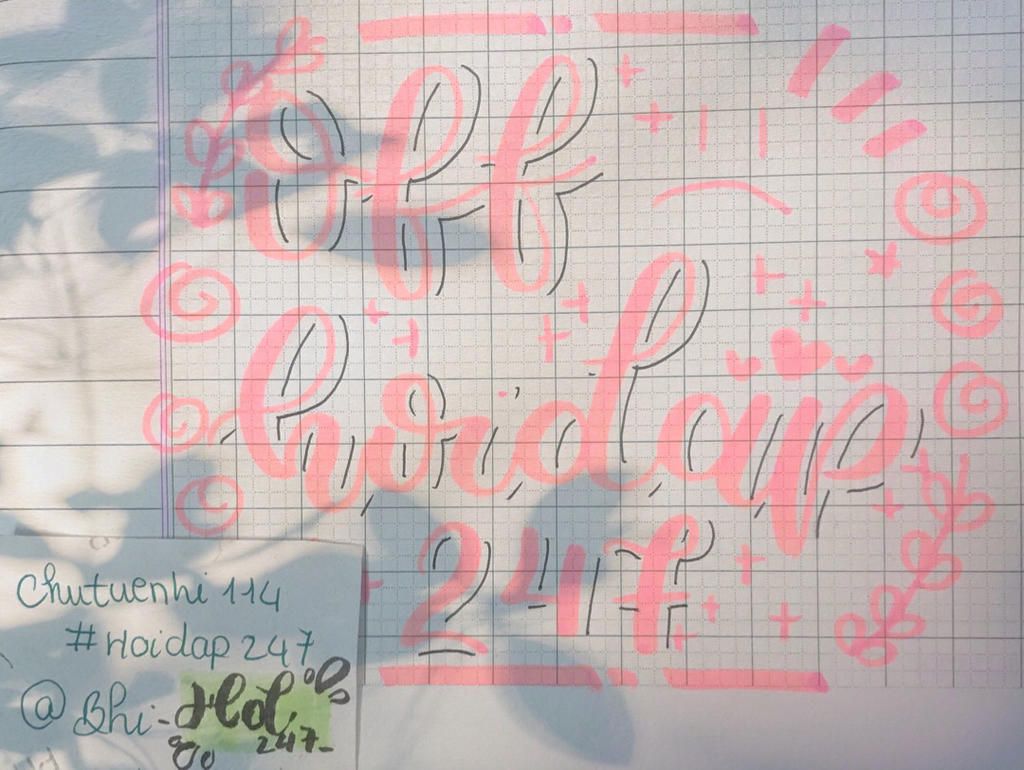 Off
hoidap
247
Chutuenhi 114
#Hoidap 247
@Bhi-
247-